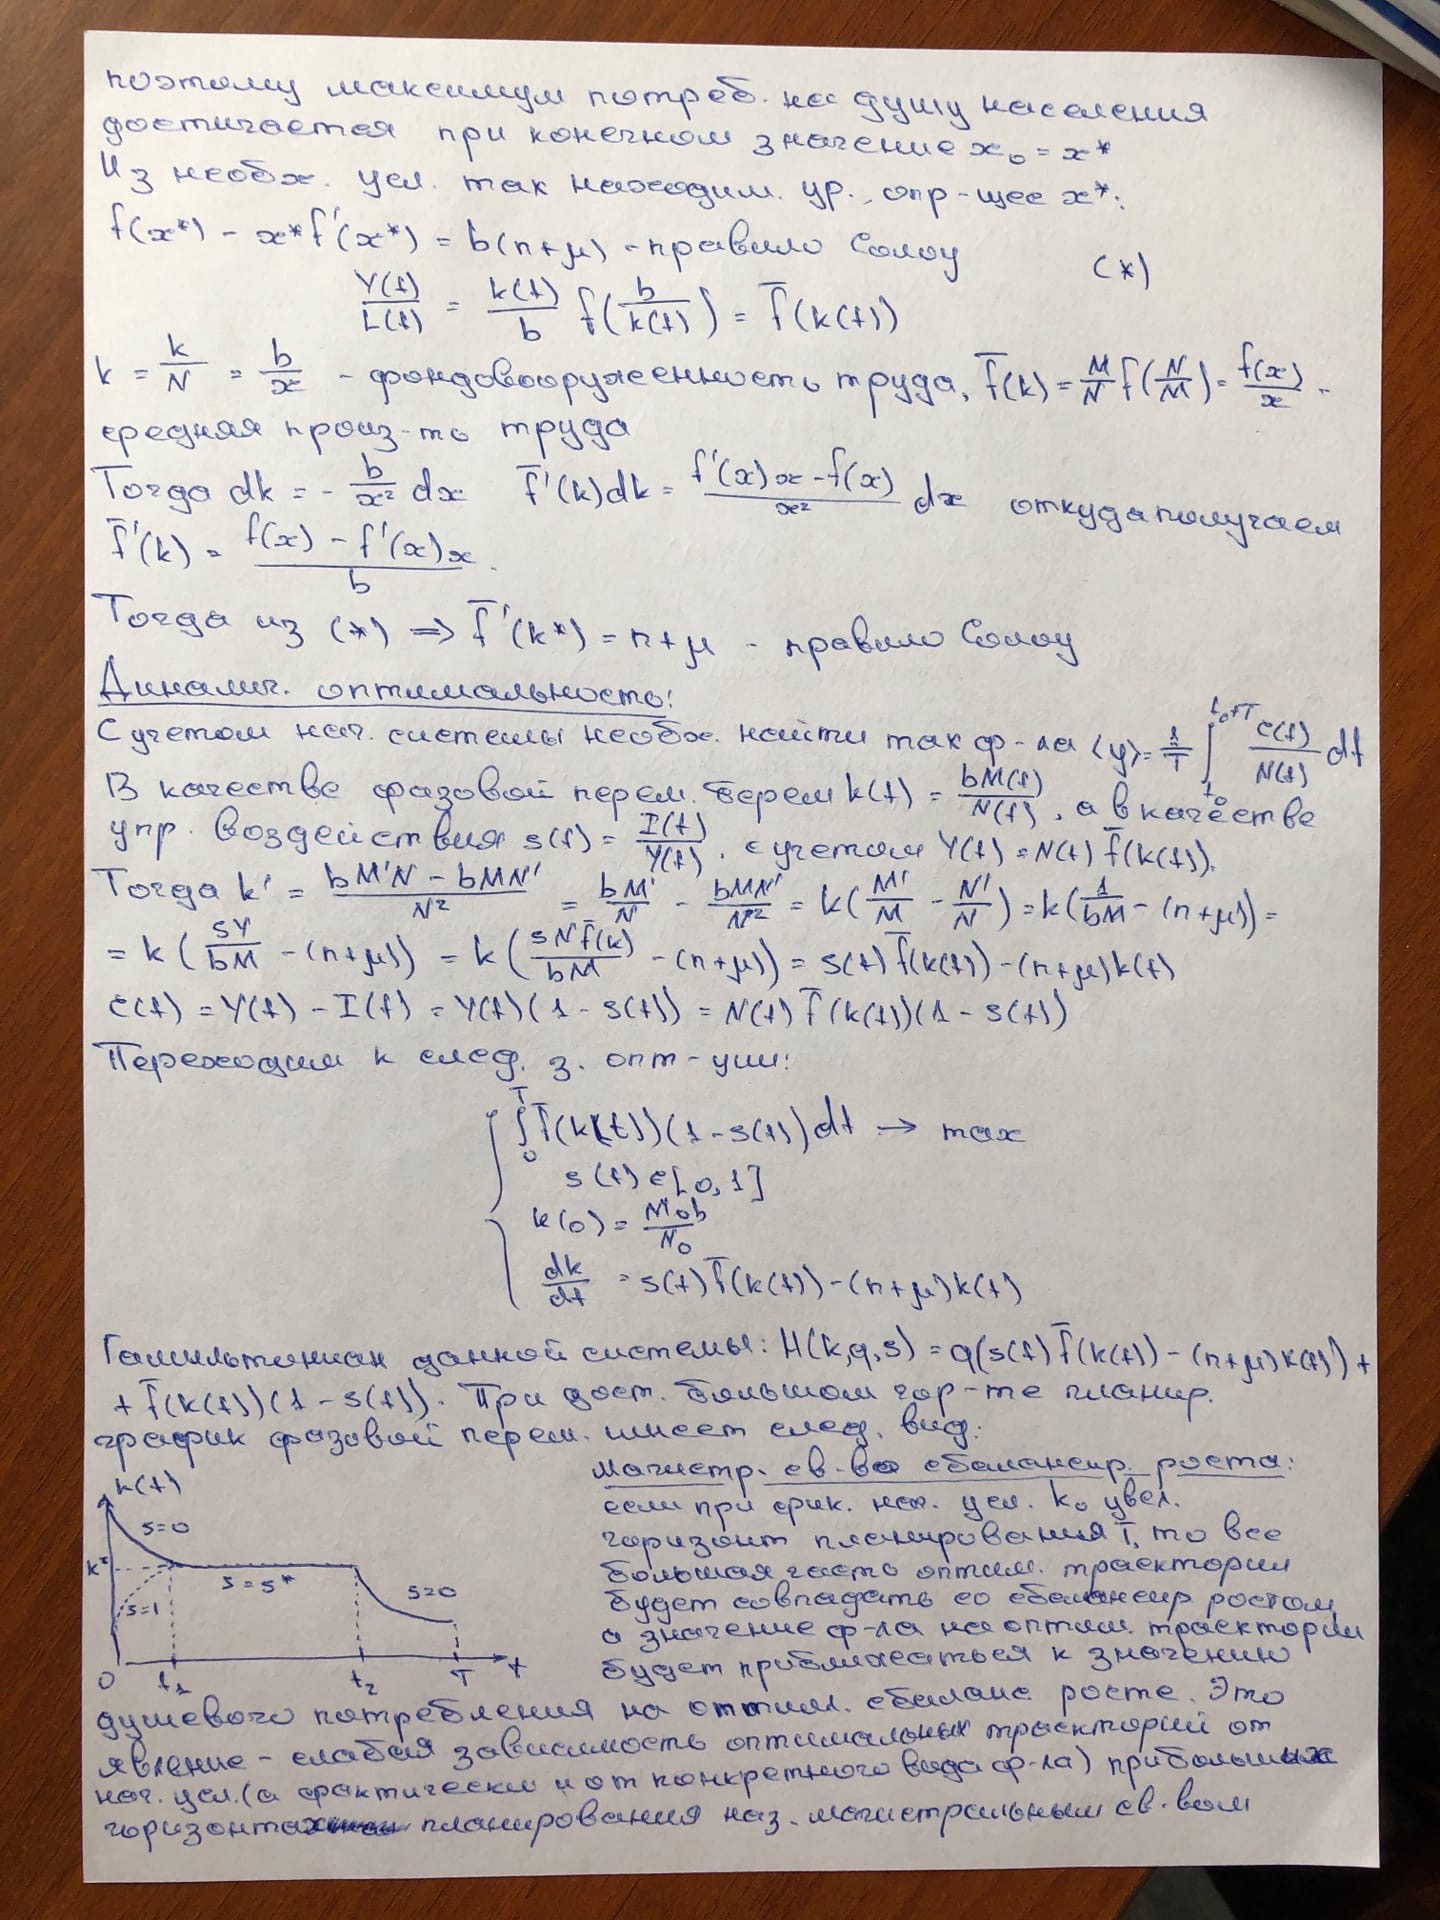 поэтому максимум потреб. на душу населения
достигается при конечном значение x₀ = x*
Из необх. усл. max находим ур., опр-щее x*:
f(x*) - x*f'(x*) = b(n+μ) - правило Солоу (*)
Y(t)/L(t) = k(t)/b f(b/k(t)) = f̄(k(t))
k = k/N = b/x - фондовооруженность труда, f̄(k) = M/N f(N/M) = f(x)/x -
средняя произ-ть труда
Тогда dk = - b/x² dx f̄'(k)dk = (f'(x)x - f(x))/x² dx откуда получаем
f̄'(k) = (f(x) - f'(x)x)/b.
Тогда из (*) => f̄'(k*) = n+μ - правило Солоу
Динамич. оптимальность:
С учетом нач. системы необх. найти max ф-ла ⟨y⟩ = 1/T ∫_{t₀}^{t₀+T} C(t)/N(t) dt
В качестве фазовой перем. берем k(t) = bM(t)/N(t), а в качестве
упр. воздействия s(t) = I(t)/Y(t), с учетом Y(t) = N(t) f̄(k(t)).
Тогда k' = (bM'N - bMN')/N² = bM'/N - bMN'/N² = k(M'/M - N'/N) = k(1/bM - (n+μ)) =
= k(sY/bM - (n+μ)) = k(sNf̄(k)/bM - (n+μ)) = s(t)f̄(k(t)) - (n+μ)k(t)
C(t) = Y(t) - I(t) = Y(t)(1 - s(t)) = N(t) f̄(k(t))(1 - s(t))
Переходим к след. з. опт-ции:
∫₀ᵀ f̄(k(t))(1 - s(t))dt → max
s(t) ∈ [0, 1]
k(0) = M₀b/N₀
dk/dt = s(t)f̄(k(t)) - (n+μ)k(t)
Гамильтониан данной системы: H(k,q,s) = q(s(t)f̄(k(t)) - (n+μ)k(t)) +
+ f̄(k(t))(1 - s(t)). При дост. большом гор-те планир.
график фазовой перем. имеет след. вид:
k(t)
s=0
k*
s=s*
s=0
s=1
0 t₁ t₂ T t
Магистр. св-во сбалансир. роста:
если при фик. нач. усл. k₀ увел.
горизонт планирования T, то все
большая часть оптим. траектории
будет совпадать со сбалансир ростом
а значение ф-ла на оптим. траектории
будет приближаться к значению
душевого потребления на оптим. сбаланс. росте. Это
явление - слабая зависимость оптимальных траекторий от
нач. усл. (а фактически и от конкретного вида ф-ла) при больших
горизонтах планирования наз. магистральным св-вом